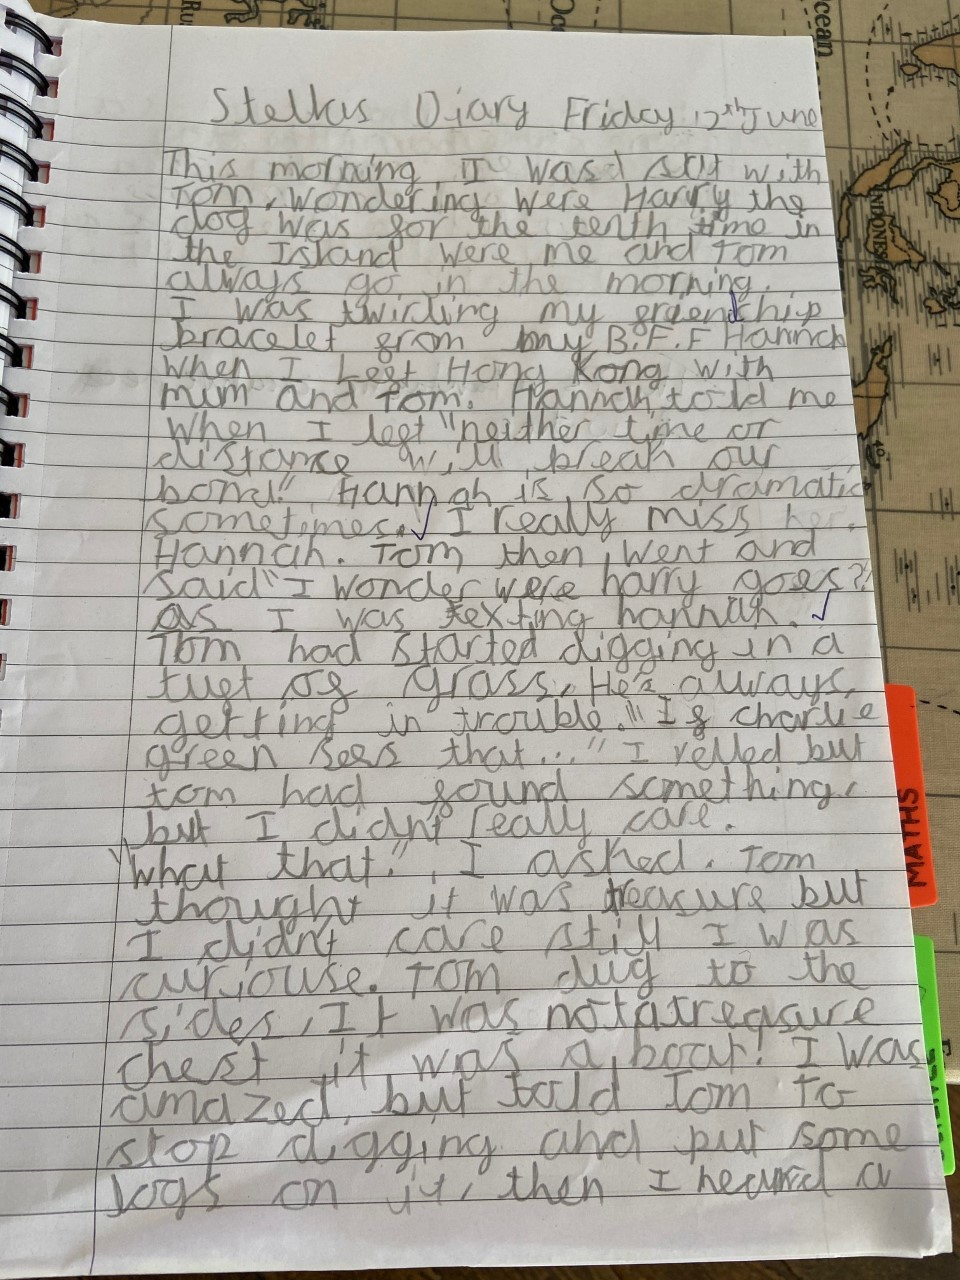 Stellas Diary Friday 12th June
This morning I was sat with
Tom, wondering were Harry the
dog was for the tenth time in
the Island were me and Tom
always go in the morning.
I was twirling my friendship
bracelet from my B.F.F Hannah
when I Left Hong Kong with
mum and Tom. Hannah told me
when I left "neither time or
distance will break our
bond" Hannah is so dramatic
sometimes. I really miss her.
Hannah. Tom then went and
said "I wonder were harry goes?"
as I was texting hannah.
Tom had started digging in a
tuft of grass, He's always
getting in trouble. "If charlie
green sees that..." I yelled but
tom had found something,
but I didn't really care.
"what that." I asked. Tom
thought it was treasure but
I didn't care still I was
curiouse. Tom dug to the
sides, It was not a treasure
chest it was a boat! I was
amazed, but told Tom to
stop digging and put some
logs on it, then I heard a
MATHS
INDONES
Ocean
Ru
Oc